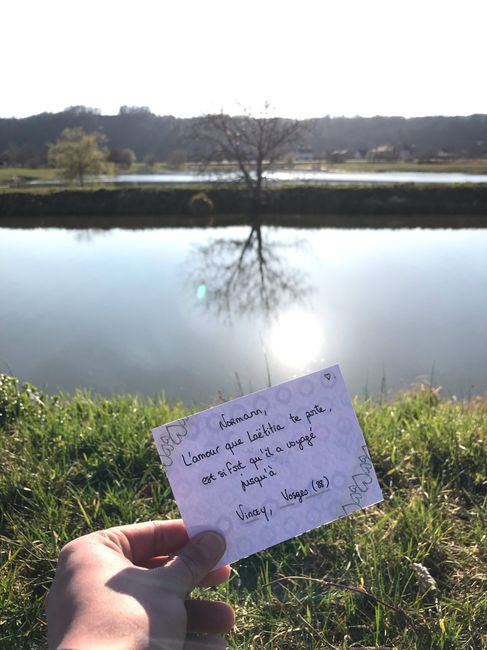 Normann,
L'amour que Laëtitia te porte,
est si fort qu'il a voyagé
jusqu'à
Vincey, Vosges (88)